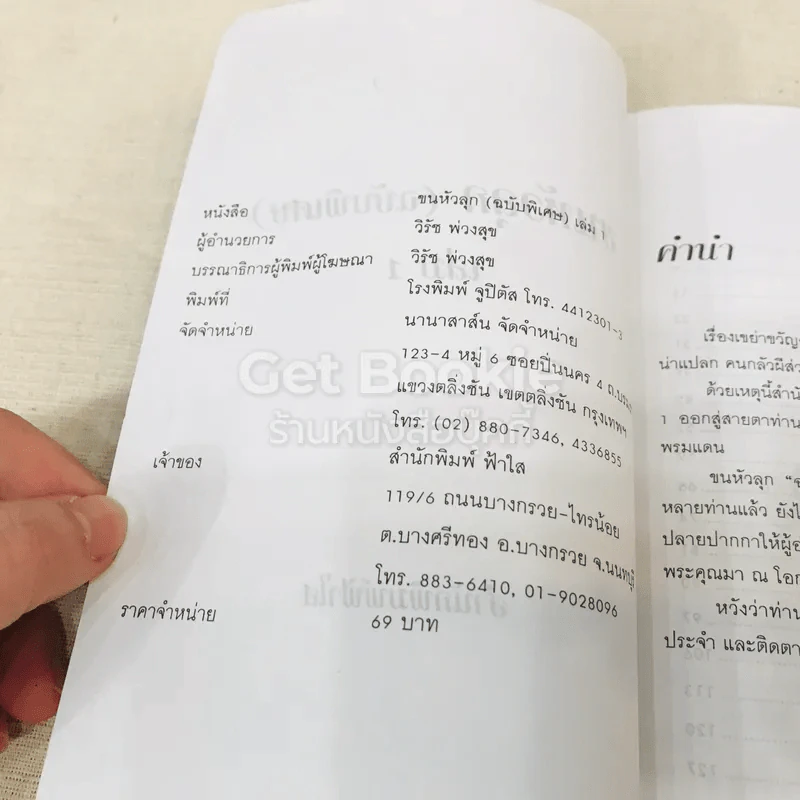 หนังสือ ขนหัวลุก (ฉบับพิเศษ) เล่ม 1
ผู้อำนวยการ วิรัช พ่วงสุข
บรรณาธิการผู้พิมพ์ผู้โฆษณา วิรัช พ่วงสุข
พิมพ์ที่ โรงพิมพ์ จูปิตัส โทร. 4412301-3
จัดจำหน่าย นานาสาส์น จัดจำหน่าย
123-4 หมู่ 6 ซอยปิ่นนคร 4 ถ.บรม
แขวงตลิ่งชัน เขตตลิ่งชัน กรุงเทพฯ
โทร. (02) 880-7346, 4336855
เจ้าของ สำนักพิมพ์ ฟ้าใส
119/6 ถนนบางกรวย-ไทรน้อย
ต.บางศรีทอง อ.บางกรวย จ.นนทบุรี
โทร. 883-6410, 01-9028096
ราคาจำหน่าย 69 บาท
Get Bookie
ร้านหนังสือบุ๊คกี้
คำนำ
เรื่องเขย่าขวัญ
น่าแปลก คนกลัวผีส่ว
ด้วยเหตุนี้สำนั
1 ออกสู่สายตาท่าน
พรมแดน
ขนหัวลุก “ฉ
หลายท่านแล้ว ยังไ
ปลายปากกาให้ผู้อ
พระคุณมา ณ โอก
หวังว่าท่าน
ประจำ และติดตา